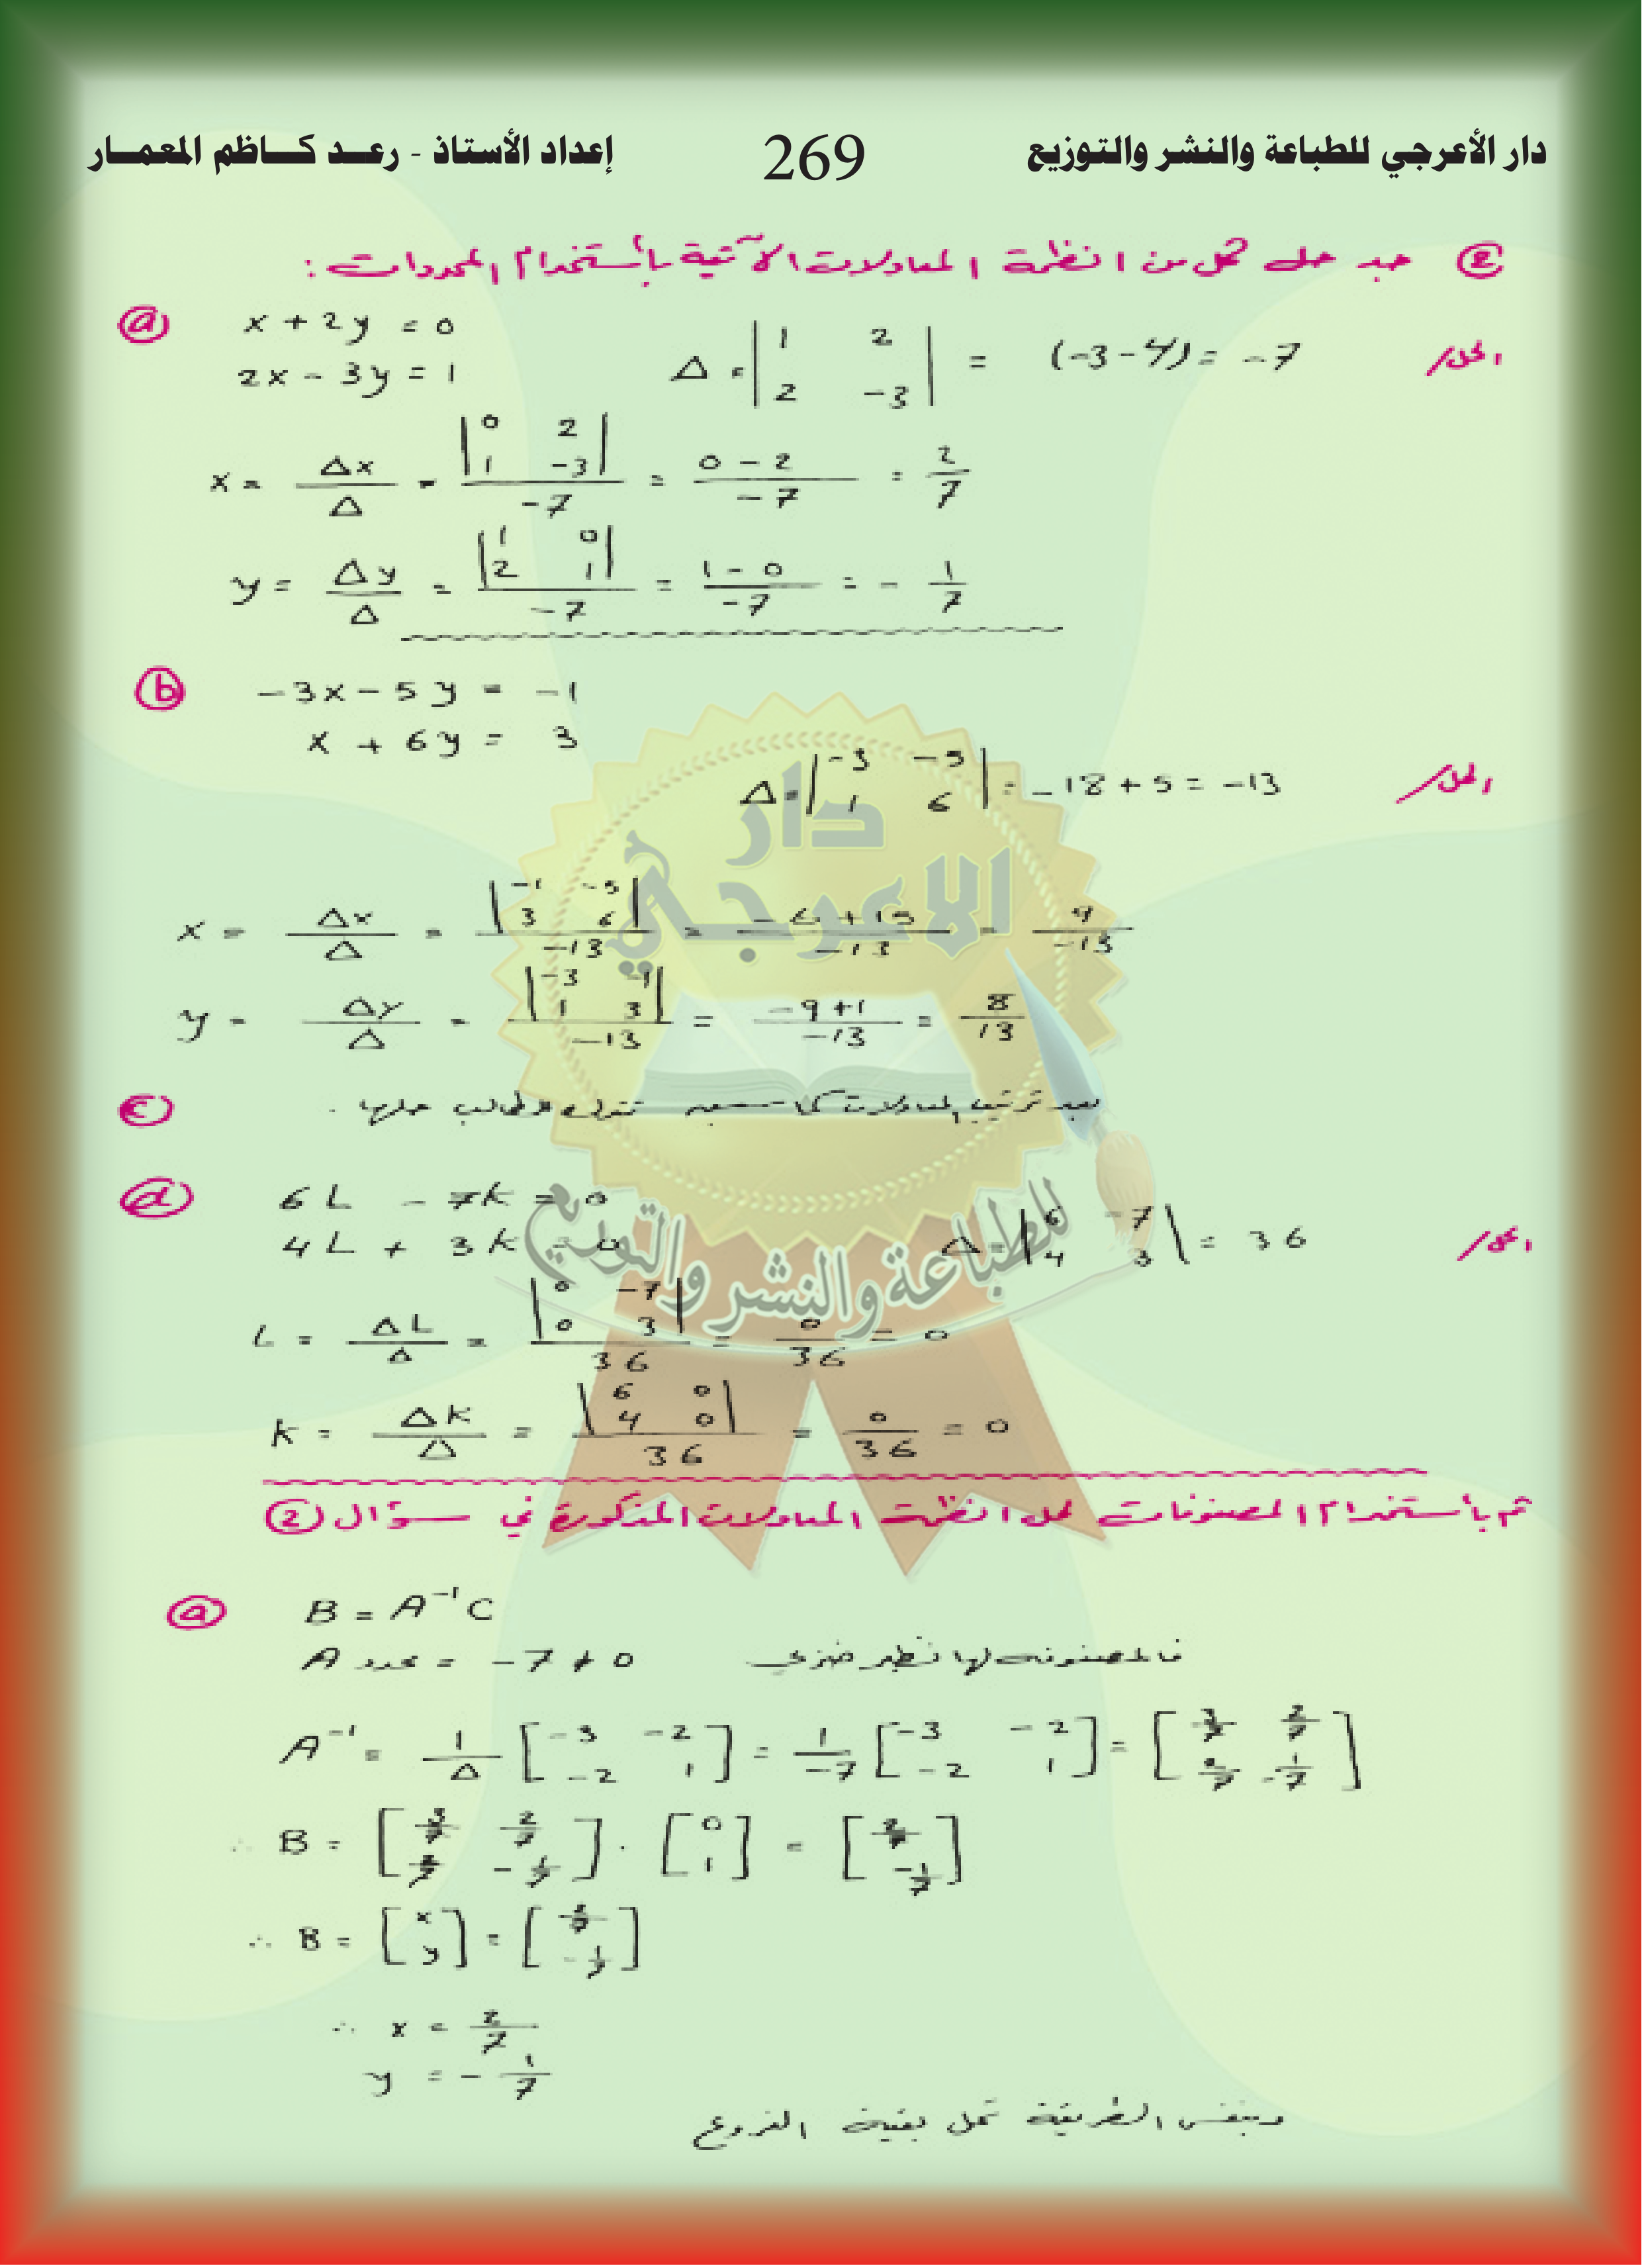 دار الأعرجي للطباعة والنشر والتوزيع 269 إعداد الأستاذ - رعد كاظم المعمار
② جد حل كل من انظمة المعادلات الآتية بأستخدام المحددات :
ⓐ x + 2y = 0
2x - 3y = 1
الحل/ Δ = | 1 2 ; 2 -3 | = (-3-4) = -7
x = Δx/Δ = | 0 2 ; 1 -3 | / -7 = (0-2)/-7 = 2/7
y = Δy/Δ = | 1 0 ; 2 1 | / -7 = (1-0)/-7 = - 1/7
ⓑ -3x - 5y = -1
x + 6y = 3
الحل/ Δ = | -3 -5 ; 1 6 | = -18 + 5 = -13
x = Δx/Δ = | -1 -5 ; 3 6 | / -13 = (-6+15)/-13 = 9/-13
y = Δy/Δ = | -3 -1 ; 1 3 | / -13 = (-9+1)/-13 = 8/13
ⓒ بعد ترتيب المعادلات كما سبق تترك للطالب حلها .
ⓓ 6L - 7k = 0
4L + 3k = 0
الحل/ Δ = | 6 -7 ; 4 3 | = 36
L = ΔL/Δ = | 0 -7 ; 0 3 | / 36 = 0/36 = 0
k = Δk/Δ = | 6 0 ; 4 0 | / 36 = 0/36 = 0
ثم بأستخدام المصفوفات لحل انظمة المعادلات المذكورة في سؤال ②
ⓐ B = A⁻¹C
محدد A = -7 ≠ 0 فالمصفوفة لها نظير ضربي
A⁻¹ = 1/Δ [ -3 -2 ; -2 1 ] = 1/-7 [ -3 -2 ; -2 1 ] = [ 3/7 2/7 ; 2/7 -1/7 ]
∴ B = [ 3/7 2/7 ; 2/7 -1/7 ] . [ 0 ; 1 ] = [ 2/7 ; -1/7 ]
∴ B = [ x ; y ] = [ 2/7 ; -1/7 ]
∴ x = 2/7
y = - 1/7
وبنفس الطريقة تحل بقية الفروع
دار
الاعرجي
للطباعة والنشر والتوزيع